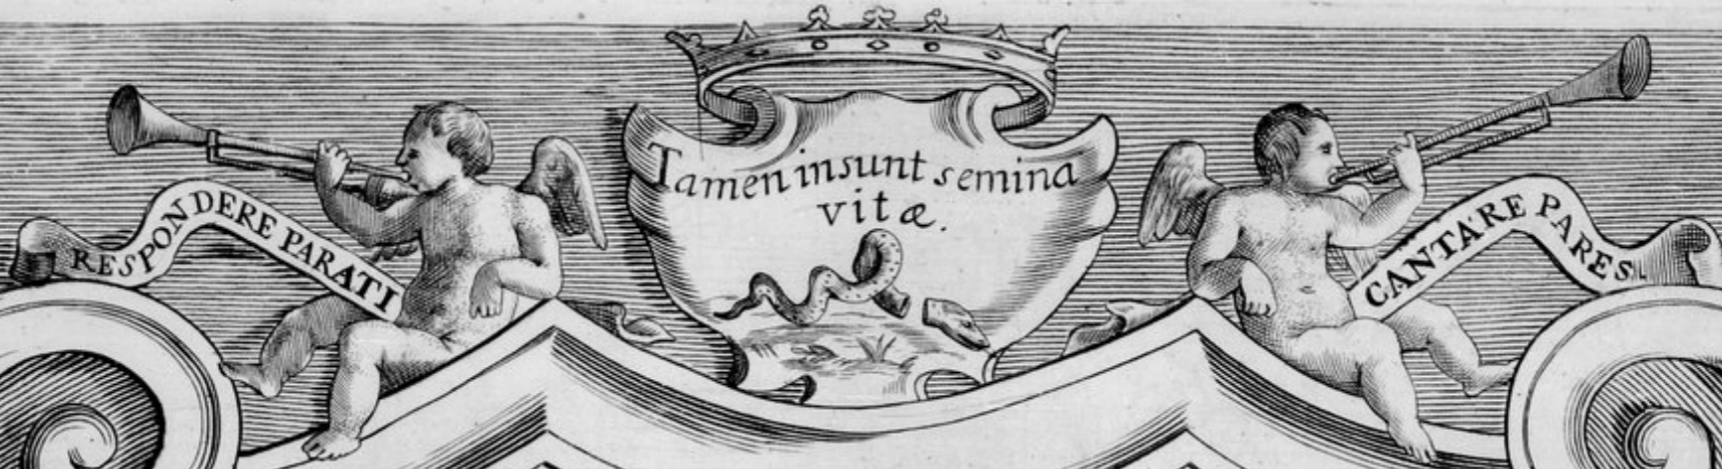 RESPONDERE PARATI
Tamen insunt semina
vitæ.
CANTARE PARES